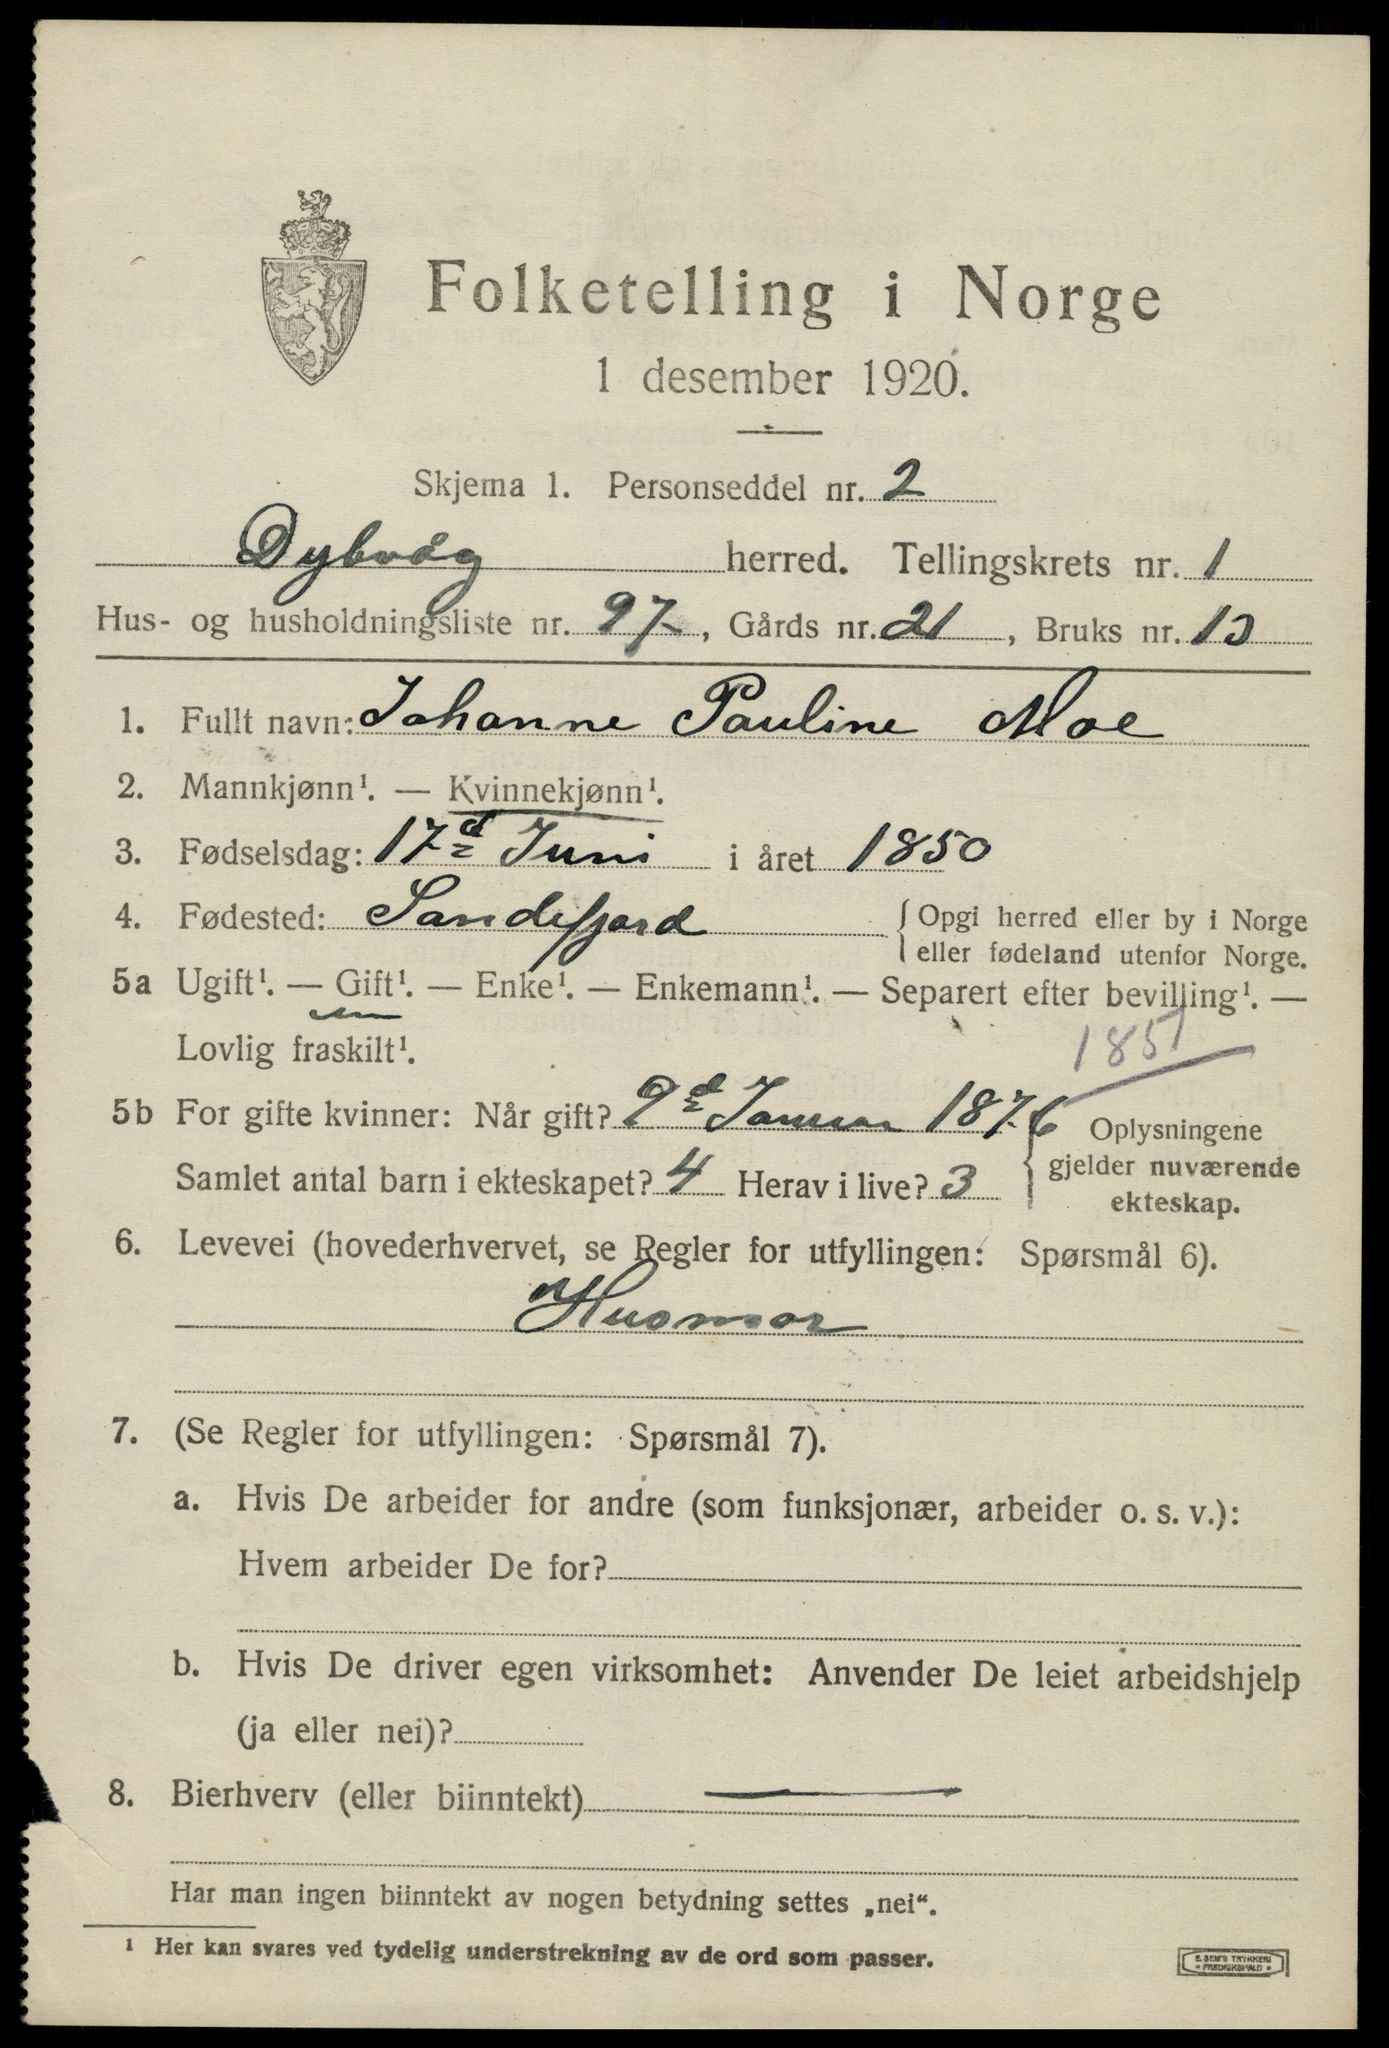 Folketelling i Norge
1 desember 1920.
Skjema 1. Personseddel nr. 2
Dybvåg herred. Tellingskrets nr. 1
Hus- og husholdningsliste nr. 97, Gårds nr. 21, Bruks nr. 13
1. Fullt navn: Johanne Pauline Moe
2. Mannkjønn¹. — Kvinnekjønn¹.
3. Fødselsdag: 17d Juni i året 1850
4. Fødested: Sandefjord {Opgi herred eller by i Norge
eller fødeland utenfor Norge.
5a Ugift¹. — Gift¹. — Enke¹. — Enkemann¹. — Separert efter bevilling¹. —
Lovlig fraskilt¹.
1851
5b For gifte kvinner: Når gift? 9d Januar 1876 { Oplysningene
Samlet antal barn i ekteskapet? 4 Herav i live? 3 gjelder nuværende
ekteskap.
6. Levevei (hovederhvervet, se Regler for utfyllingen: Spørsmål 6).
Husmor
7. (Se Regler for utfyllingen: Spørsmål 7).
a. Hvis De arbeider for andre (som funksjonær, arbeider o. s. v.):
Hvem arbeider De for?
b. Hvis De driver egen virksomhet: Anvender De leiet arbeidshjelp
(ja eller nei)?
8. Bierhverv (eller biinntekt) —
Har man ingen biinntekt av nogen betydning settes „nei“.
¹ Her kan svares ved tydelig understrekning av de ord som passer.
E. SEM'S TRYKKERI
• FREDRIKSHALD •